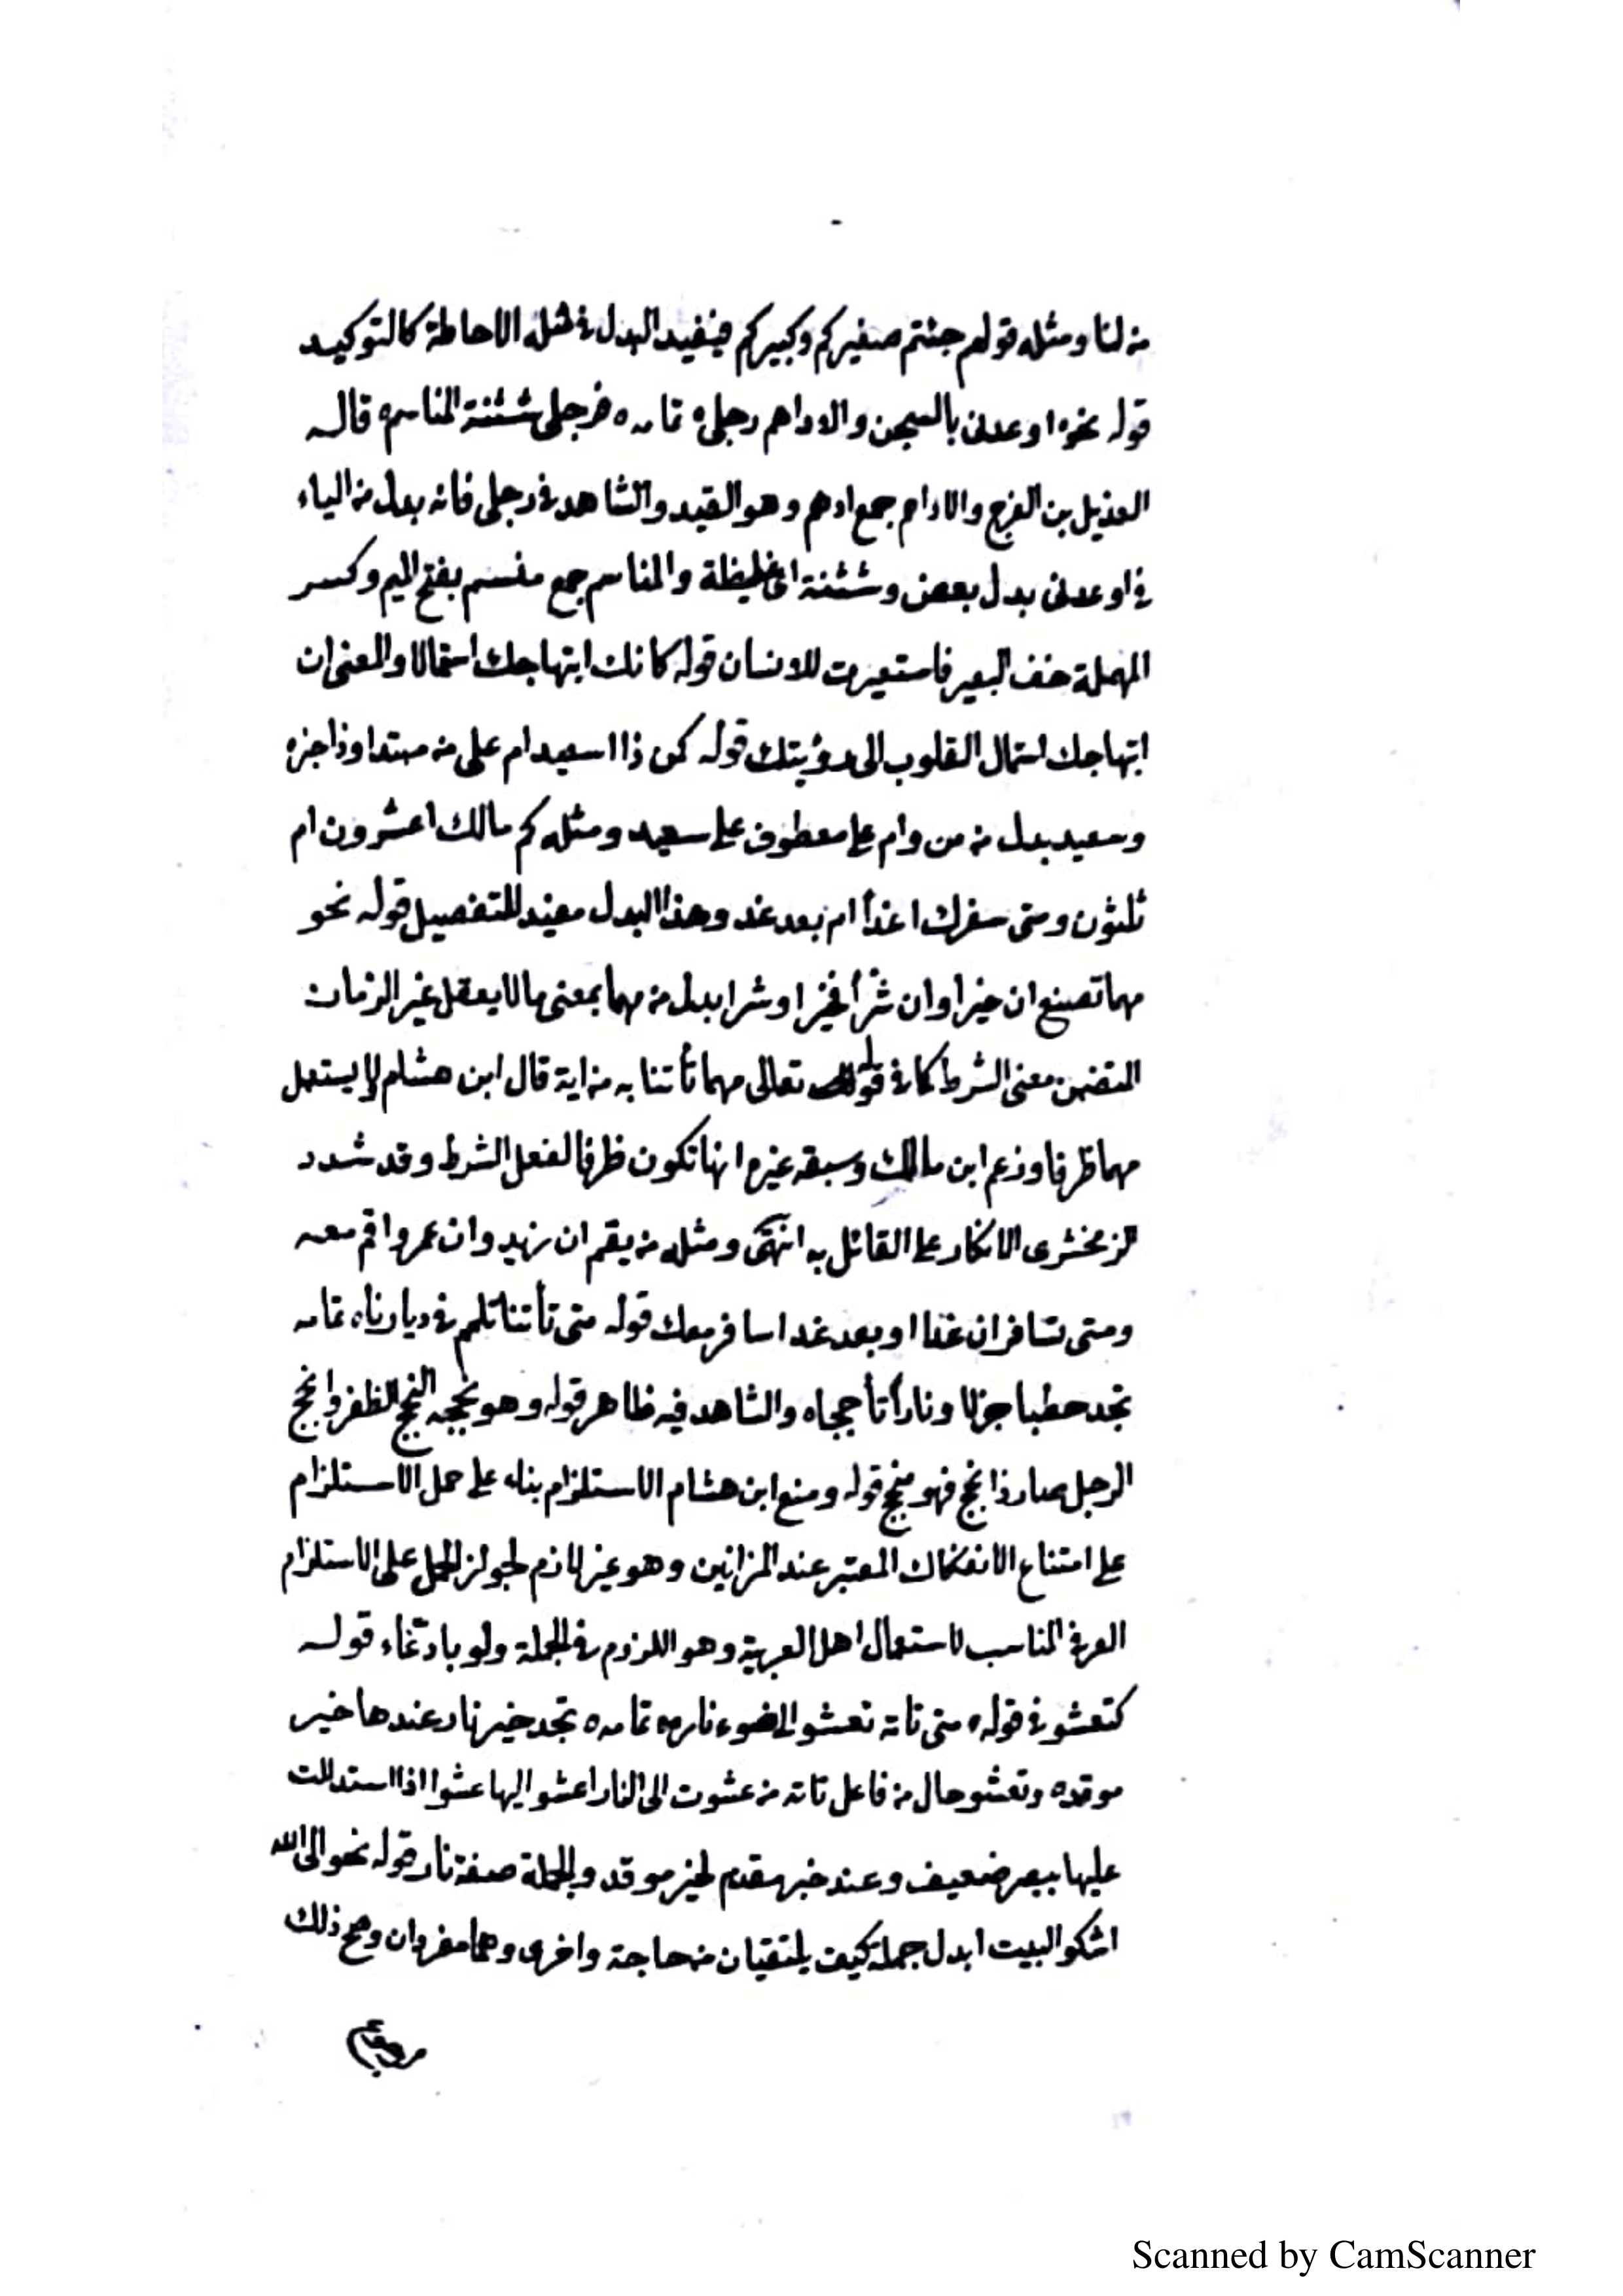 من لنا ومثله قولهم جئتم صغيركم وكبيركم فيفيد البدل في مثله الاحاطة كالتوكيد
قوله نحوه اوعدني بالسجن والاداهم رجلي ه تمامه ه فرجلي شثنة المناسم ه قاله
العذيل بن الفرج والاداهم جمع ادهم وهو القيد والشاهد في رجلي فانه بدل من الياء
في اوعدني بدل بعض وشثنة اي غليظة والمناسم جمع منسم بفتح الميم وكسر
المهملة خف البعير فاستعيرت للانسان قوله كانك ابتهاجك استمالا والمعنى ان
ابتهاجك استمال القلوب الى رؤيتك قوله كمن ذا اسعيد ام علي من مبتدا وذا خبره
وسعيد بدل من من وام علي معطوف على سعيد ومثله كم مالك اعشرون ام
ثلثون ومتى سفرك اغداً ام بعد غد وهذا البدل مفيد للتفصيل قوله نحو
مهما تصنع ان خيرا وان شراً فخيرا وشرا بدل من مهما بمعنى ما لا يعقل غير الزمان
المتضمن معنى الشرط كما في قوله تعالى مهما تأتنا به من اية قال ابن هشام لا يستعمل
مهما ظرفا وزعم ابن مالك وسبقه غيره انها تكون ظرفا لفعل الشرط وقد شدد
الزمخشري الانكار على القائل به انتهى ومثله من يقم ان زيد وان عمرو اقم معه
ومتى تسافر ان غدا او بعد غد اسافر معك قوله متى تأتنا تلمم في ديارنا ه تمامه
تجد حطبا جزلا وناراً تأججا ه والشاهد فيه ظاهر قوله وهو بحجه النجح الظفر وانجح
الرجل صار ذا نجح فهو منجح قوله ومنع ابن هشام الاستلزام بناء على حمل الاستلزام
على امتناع الانفكاك المعتبر عند الميزانين وهو غير لازم لجواز الحمل على الاستلزام
العرفي المناسب لاستعمال اهل العربية وهو اللزوم في الجملة ولو بادّعاء قوله
كتعشو في قوله ه متى تاته تعشو الى ضوء ناره ه تمامه ه تجد خير نار عندها خير
موقد ه وتعشو حال من فاعل تاته من عشوت الى النار اعشو اليها عشوا اذا استدللت
عليها ببصر ضعيف وعند خبر مقدم لخير موقد والجملة صفة نار قوله نحو الى الله
اشكو البيت ابدل جملة كيف يلتقيان من حاجة واخرى وهما مفردان وصح ذلك